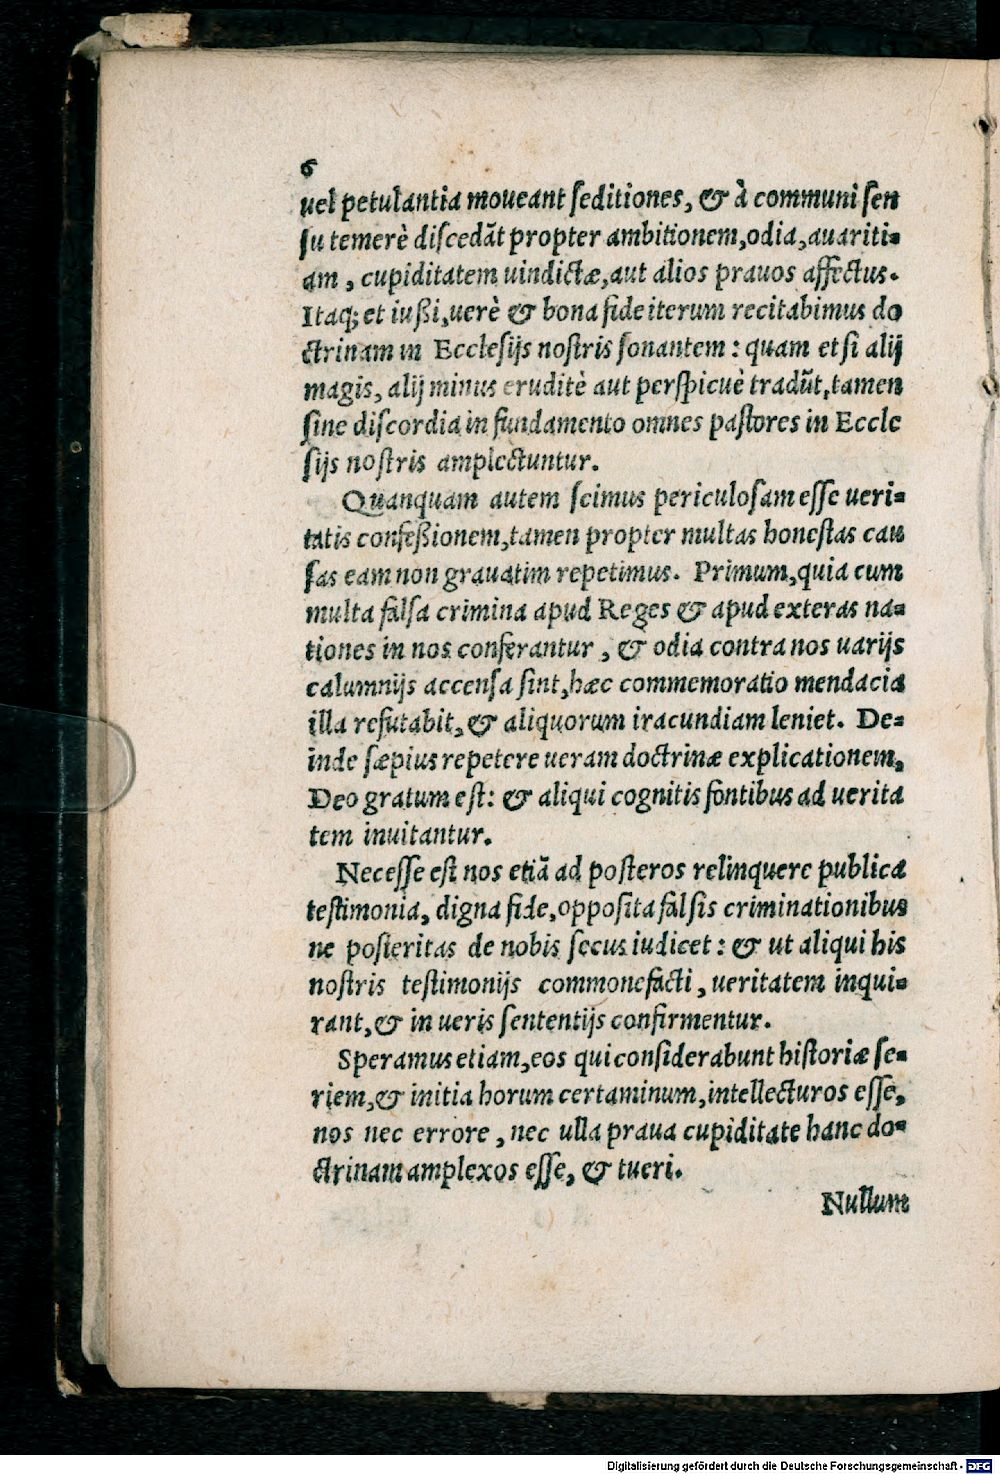 6
uel petulantia moueant ſeditiones, & à communi ſen
ſu temerè diſcedãt propter ambitionem, odia, auariti-
am, cupiditatem uindictæ, aut alios prauos affectus.
Itaq; et iußi, uerè & bona fide iterum recitabimus do
ctrinam in Eccleſijs noſtris ſonantem: quam etſi alij
magis, alij minus eruditè aut perſpicuè tradũt, tamen
ſine diſcordia in fundamento omnes paſtores in Eccle
ſijs noſtris amplectuntur.
Quanquam autem ſcimus periculoſam eſſe ueri-
tatis confeßionem, tamen propter multas honeſtas cau
ſas eam non grauatim repetimus. Primum, quia cum
multa falſa crimina apud Reges & apud exteras na-
tiones in nos conferantur, & odia contra nos uarijs
calumnijs accenſa ſint, hæc commemoratio mendacia
illa refutabit, & aliquorum iracundiam leniet. De-
inde ſæpius repetere ueram doctrinæ explicationem,
Deo gratum eſt: & aliqui cognitis fontibus ad uerita
tem inuitantur.
Neceſſe eſt nos etiã ad poſteros relinquere publica
teſtimonia, digna fide, oppoſita falſis criminationibus
ne poſteritas de nobis ſecus iudicet: & ut aliqui his
noſtris teſtimonijs commonefacti, ueritatem inqui-
rant, & in ueris ſententijs confirmentur.
Speramus etiam, eos qui conſiderabunt hiſtoriæ ſe-
riem, & initia horum certaminum, intellecturos eſſe,
nos nec errore, nec ulla praua cupiditate hanc do-
ctrinam amplexos eſſe, & tueri.
Nullum
Digitalisierung gefördert durch die Deutsche Forschungsgemeinschaft - DFG